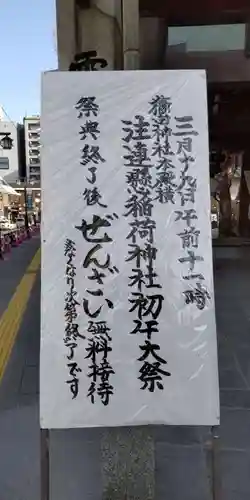 三月十九日午前十一時
櫛田神社本殿横
注連懸稲荷神社初午大祭
祭典終了後
ぜんざい無料接待
無くなり次第終了です